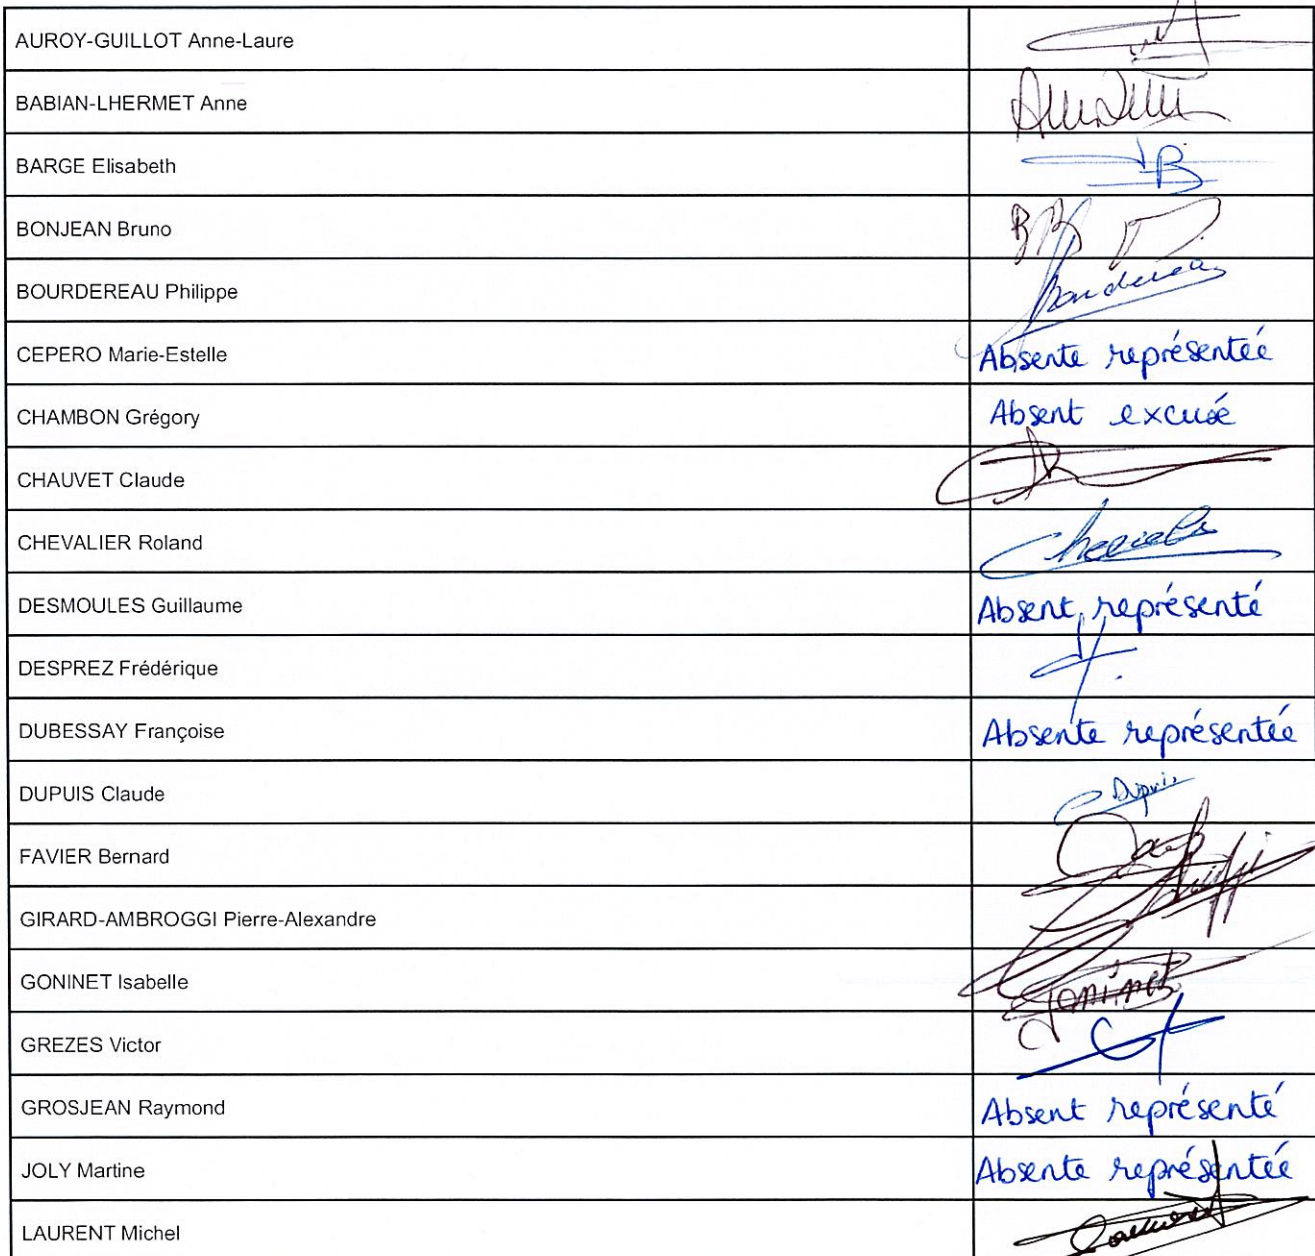 AUROY-GUILLOT Anne-Laure
BABIAN-LHERMET Anne
BARGE Elisabeth
BONJEAN Bruno
BOURDEREAU Philippe
CEPERO Marie-Estelle Absente représentée
CHAMBON Grégory Absent excusé
CHAUVET Claude
CHEVALIER Roland
DESMOULES Guillaume Absent représenté
DESPREZ Frédérique
DUBESSAY Françoise Absente représentée
DUPUIS Claude Dupuis
FAVIER Bernard
GIRARD-AMBROGGI Pierre-Alexandre
GONINET Isabelle Goninet
GREZES Victor
GROSJEAN Raymond Absent représenté
JOLY Martine Absente représentée
LAURENT Michel